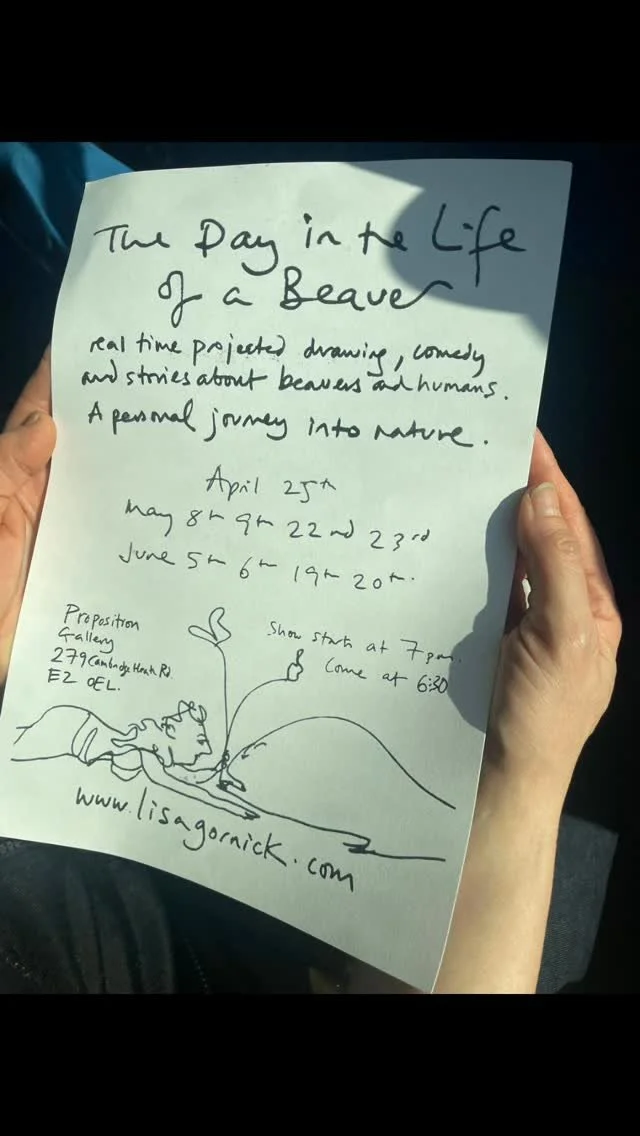 The Day in the Life
of a Beaver
real time projected drawing, comedy
and stories about beavers and humans.
A personal journey into nature.
April 25th
May 8th 9th 22nd 23rd
June 5th 6th 19th 20th.
Proposition
Gallery
279 Cambridge Heath Rd.
E2 0EL.
Show starts at 7pm.
Come at 6:30
www.lisagornick.com